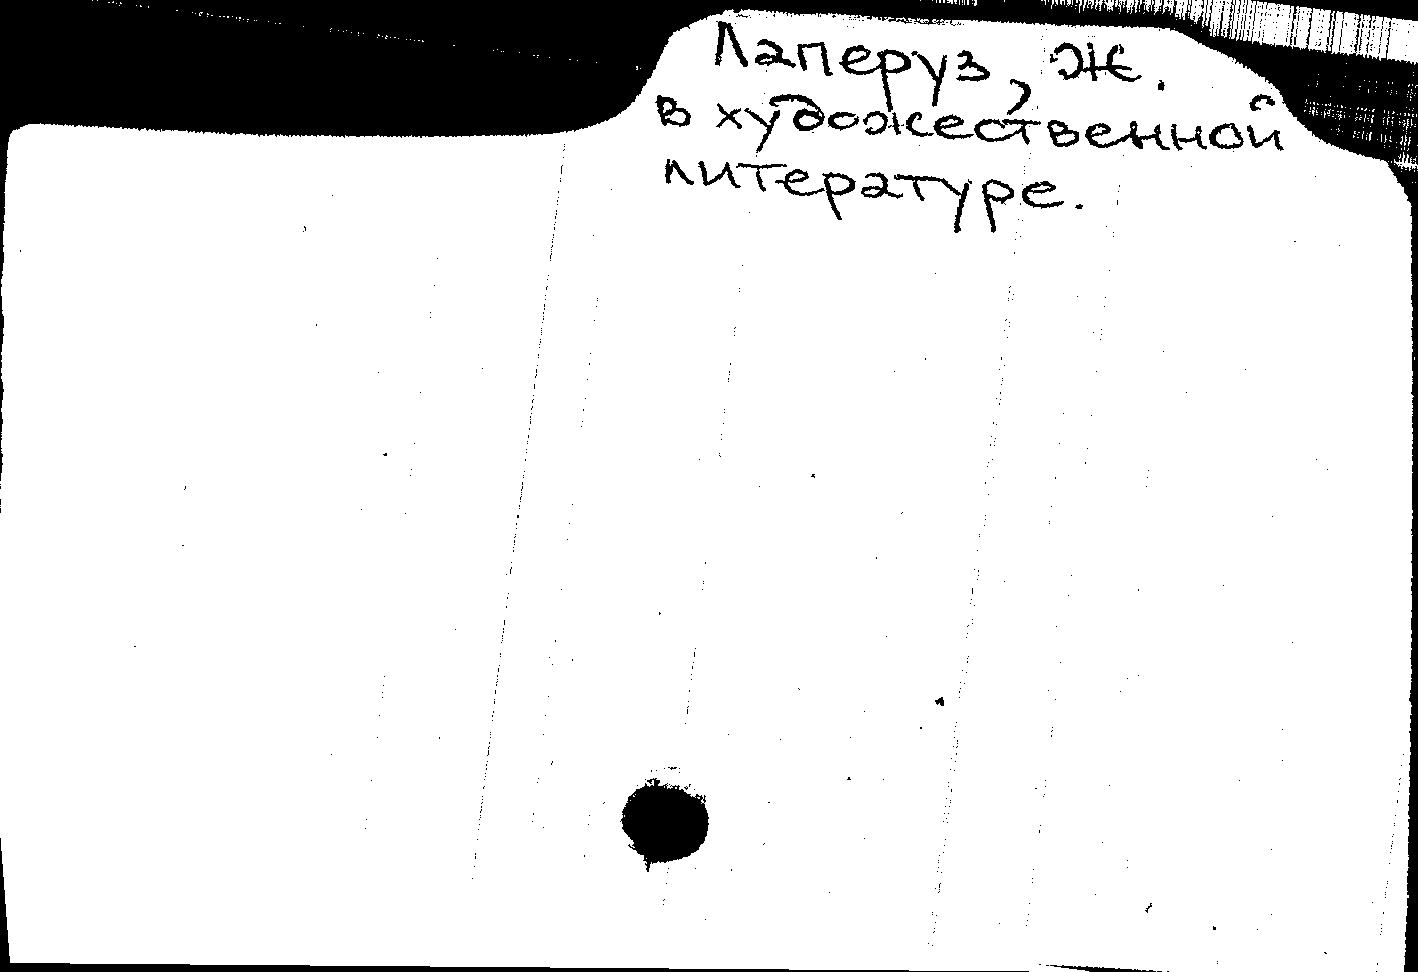 Лаперуз, Ж.
в художественной
литературе.